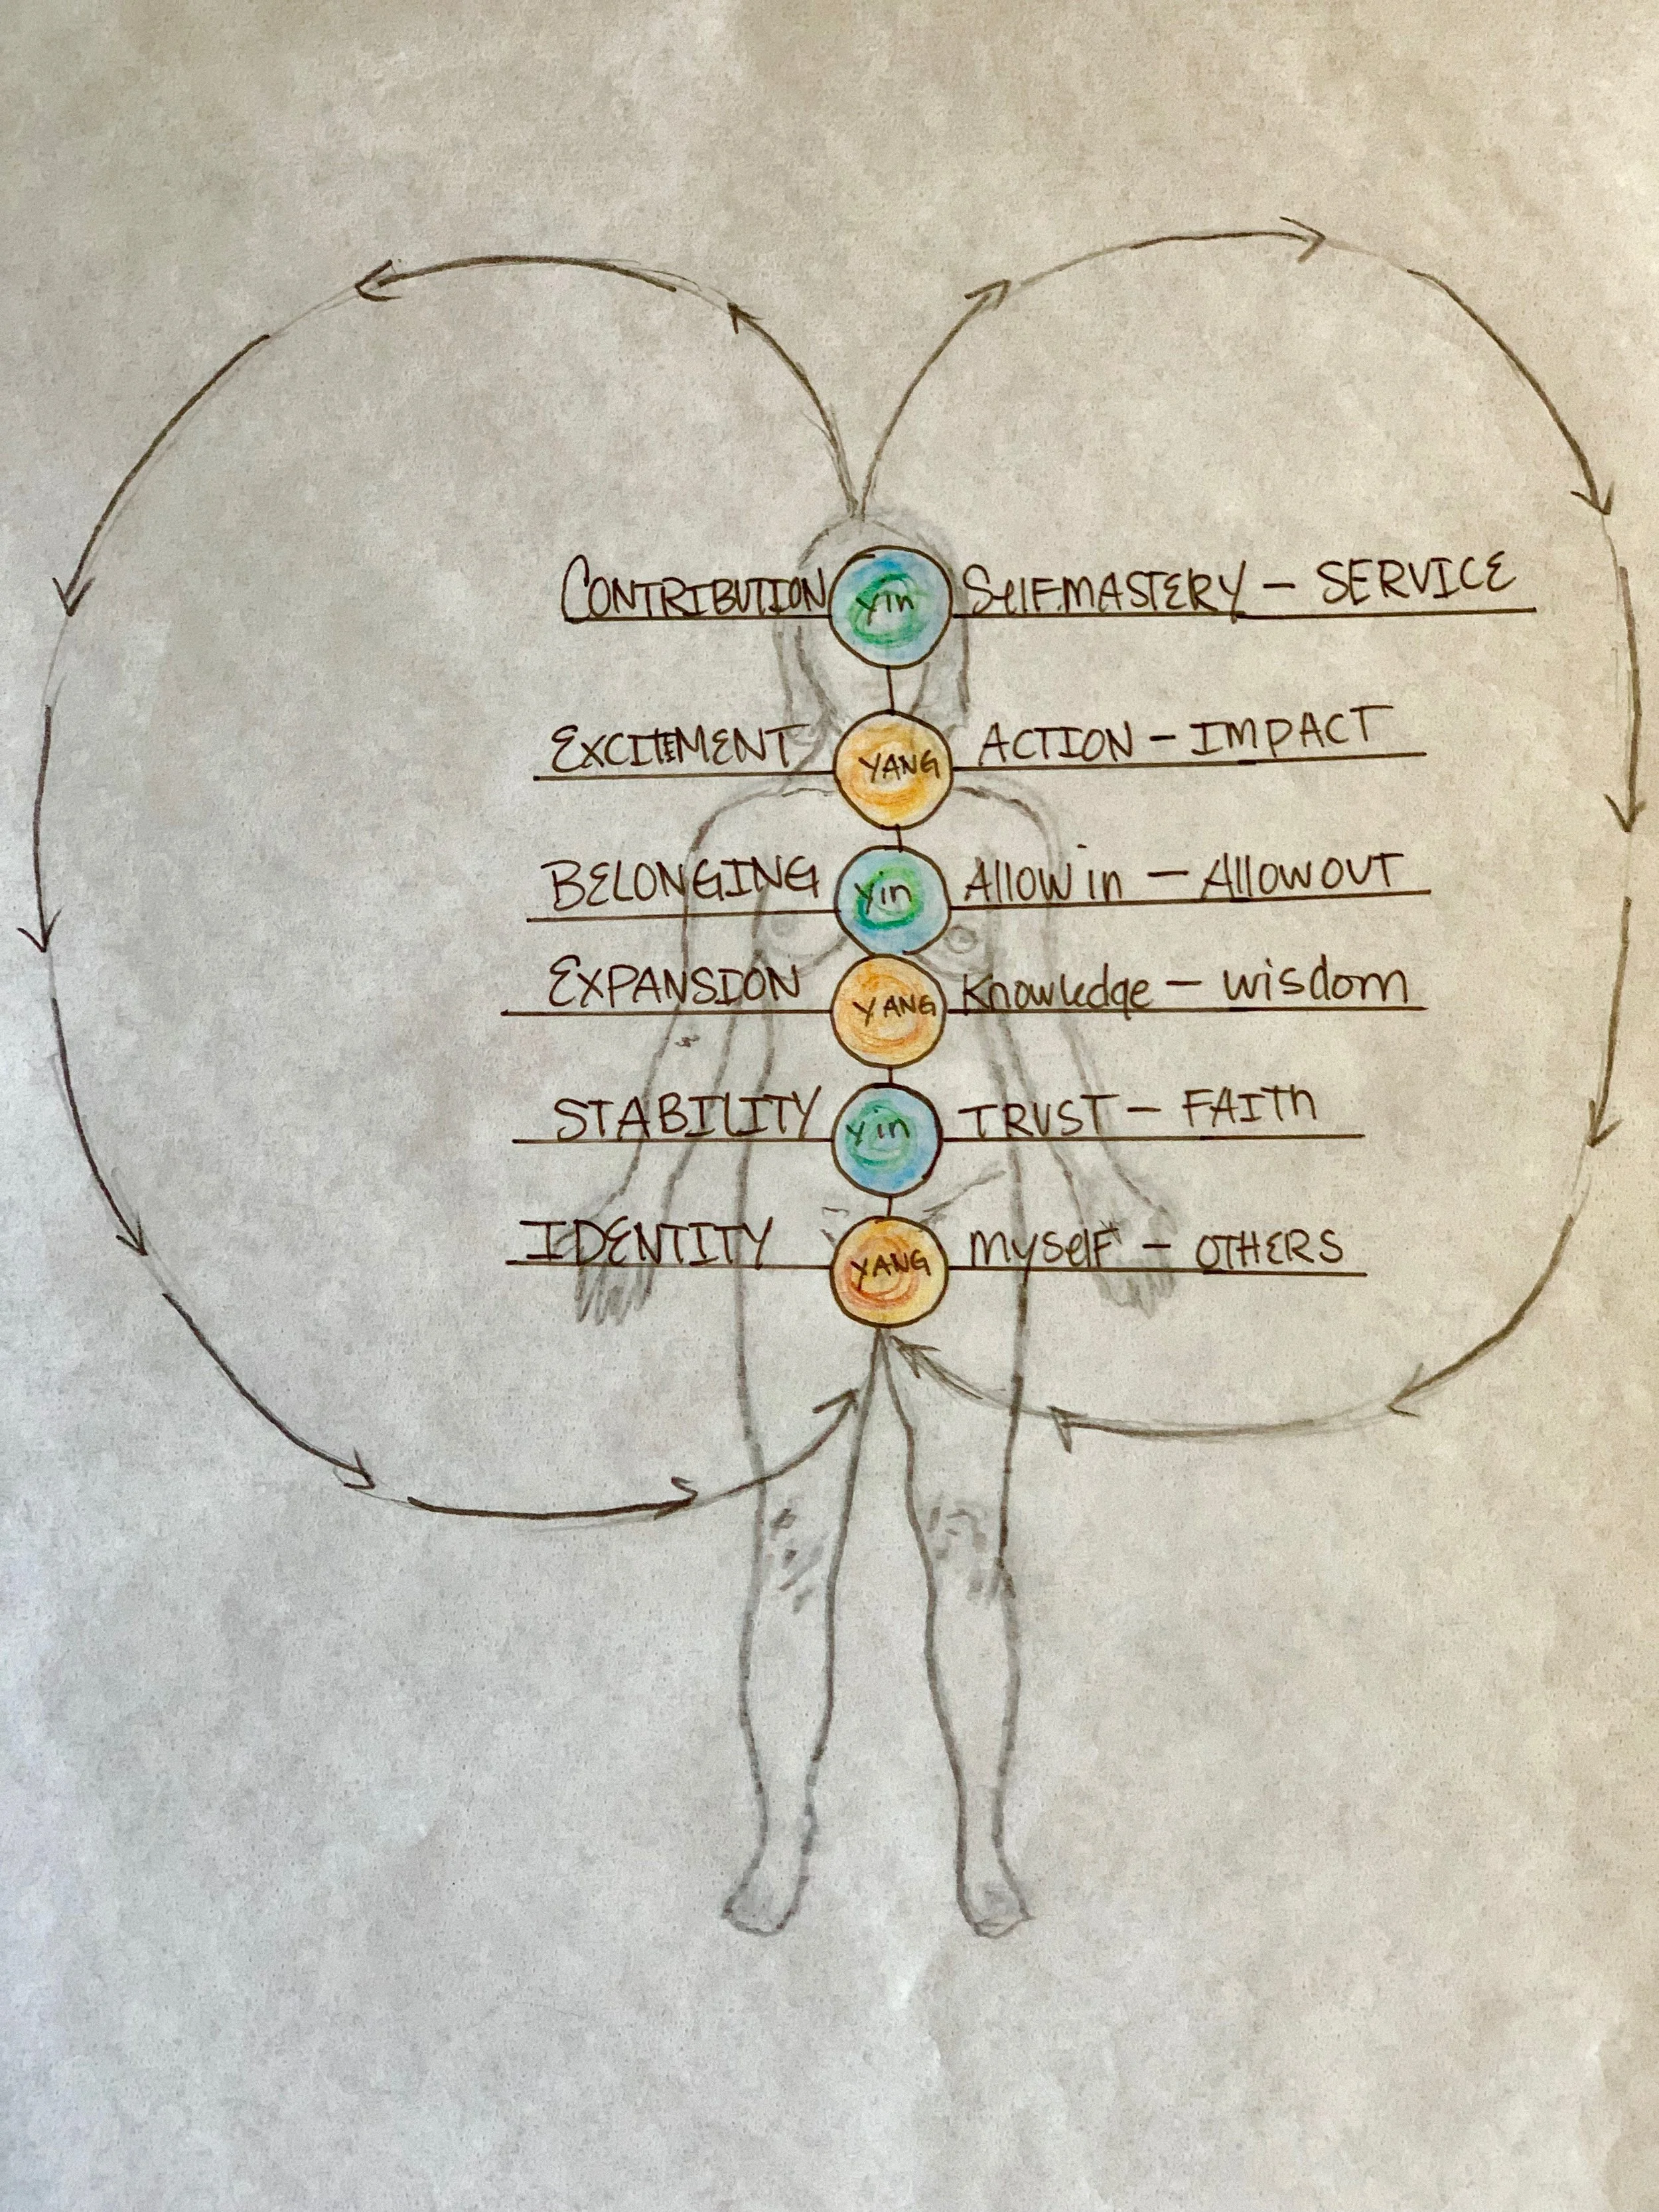 CONTRIBUTION Yin SelF.MASTERY - SERVICE
EXCITEMENT YANG ACTION - IMPACT
BELONGING Yin Allow in - Allow OUT
EXPANSION YANG Knowledge - wisdom
STABILITY Yin TRUST - FAITh
IDENTITY YANG mYself - OTHERS